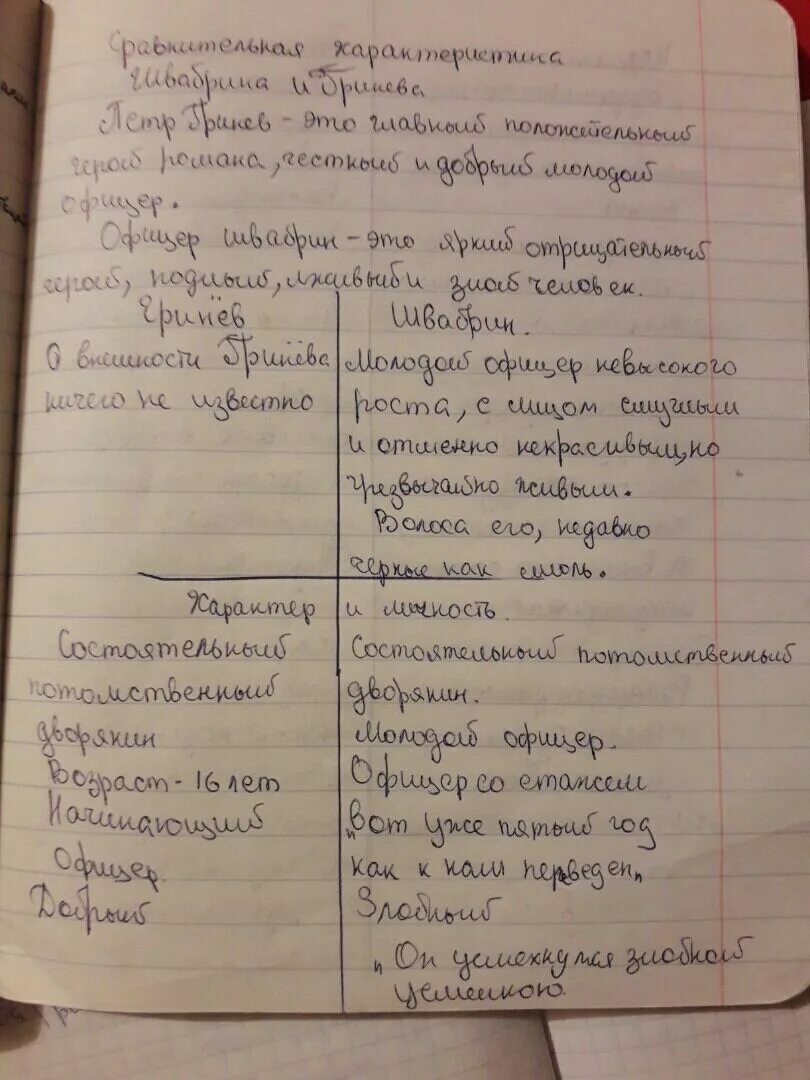 Сравнительная характеристика
Швабрина и Гринева
Пётр Гринев - это главный положительный
герой романа, честный и добрый молодой
офицер.
Офицер швабрин - это яркий отрицательный
герой, подлый, лживый и злой человек.
Гринёв
Швабрин.
О внешности Гринёва
ничего не известно
Молодой офицер невысокого
роста, с лицом смуглым
и отменно некрасивым, но
чрезвычайно живым.
Волоса его, недавно
черные как смоль.
Характер и личность.
Состоятельный
потомственный
дворянин
Возраст - 16 лет
Начинающий
Офицер.
Добрый
Состоятельный потомственный
дворянин.
Молодой офицер.
Офицер со стажем
"Вот уже пятый год
как к нам переведен"
Злобный
"Он усмехнулся злобной
усмешкою.